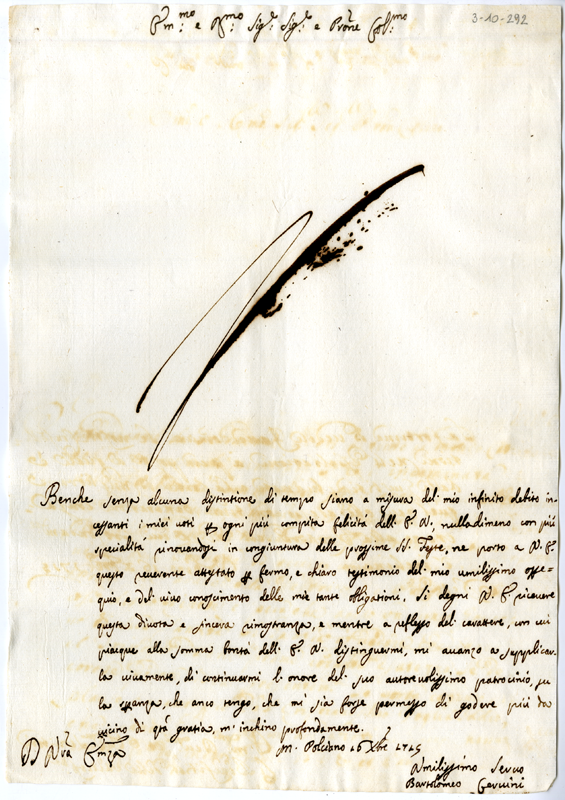 3-10-292
Em:mo e R:mo Sig:r Sig:r e Prone Col:mo
Benche senza alcuna distintione di tempo siano a misura del mio infinito debito in=
cessanti i miei voti p ogni più compita felicità dell' E. V., nulladimeno con più
specialità rinovendosi in congiuntura delle prossime SS. Feste, ne porto a V. E.
questo reverente attestato p fermo, e chiaro testimonio del mio umilissimo osse=
quio, e del vivo conoscimento delle mie tante obligationi. Si degni V. E. ricevere
questa divota e sincera rimostranza, e mentre a reflesso del carattere, con cui
piacque alla somma bontà dell' E. V. distinguermi, mi avanzo a supplicar=
la vivamente, di continuarmi l' onore del suo autorevolissimo patrocinio, su
la speranza, che anco tengo, che mi sia forse permesso di godere più da
vicino di q.ta gratia, m' inchino profondamente.
D Vra Emza
M. Polciano 16 Xbre 1725
Umilissimo Servo
Bartholomeo Cervini